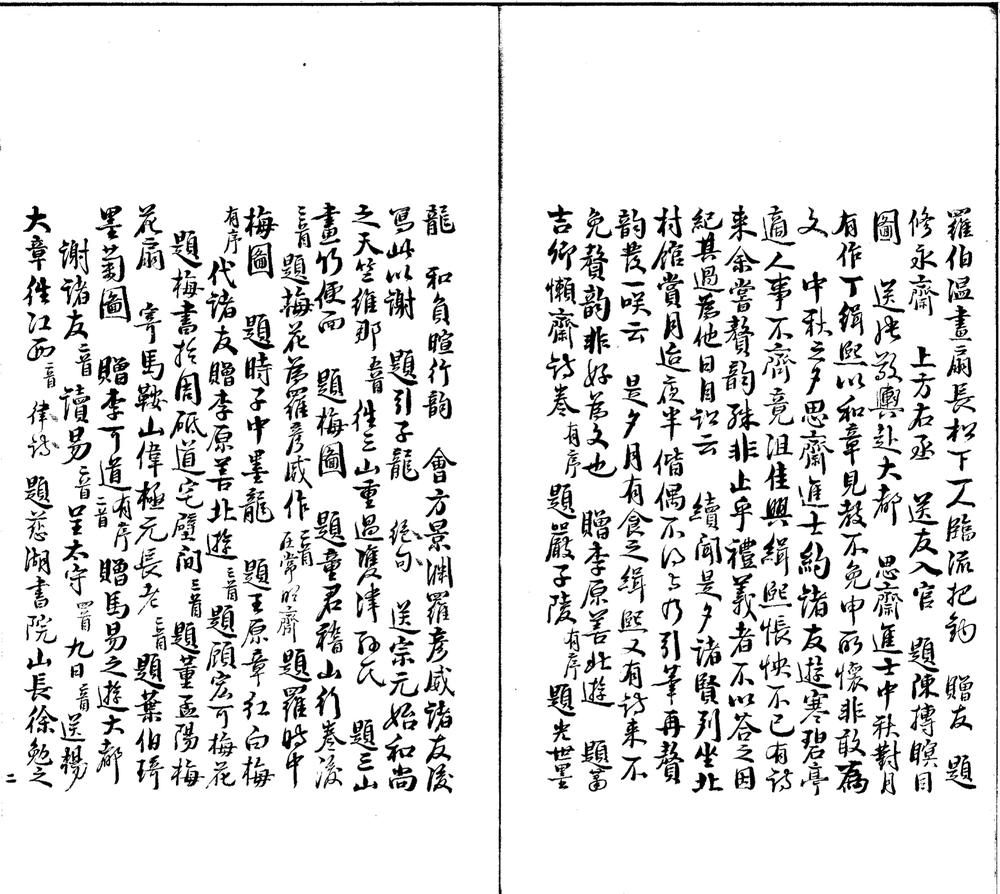 羅伯溫畫扇長松下一人臨流把釣 贈友 題
修永齋 上方右丞 送友入官 題陳摶瞑目
圖 送張敬輿赴大都 思齋進士中秋對月
有作丁緝熙以和章見教不免申所懷非敢為
文 中秋之夕思齋進士約諸友遊寒碧亭
適人事不齊竟沮佳興緝熙悵怏不已有詩
来余嘗賡韵殊非止乎禮義者不以答之因
紀其過為他日自訟云 續聞是夕諸賢列坐北
村館賞月迨夜半偕偶不得与乃引筆再賡
韵發一咲云 是夕月有食之緝熙又有詩来不
免賡韵非好為文也 贈李原善北遊 題富
吉卿懶齋詩卷有序 題嚴子陵有序 題光世墨
龍 和負暄行韵 會方景淵羅彦威諸友後
寫此以謝 題引子龍 絕句 送宗元始和尚
之天竺維那二首 徃三山重過雙津孫氏 題三山
畫竹便面 題梅圖 題童君稽山行卷後
三首 題梅花為羅彦威作二首在常明齋 題羅時中
梅圖 題時子中墨龍 題王原章紅白梅
有序 代諸友贈李原善北遊三首 題顧宏可梅花
題梅書於周砥道宅壁间三首 題董孟陽梅
花扇 寄馬鞍山偉極元長老二首 題葉伯琦
墨菊圖 贈李可道有序二首 贈馬易之遊大都
謝諸友二首 讀易二首 呈太守四首 九日二首 送楊
大章徃江西二首 律詩 題慈湖書院山長徐勉之
二